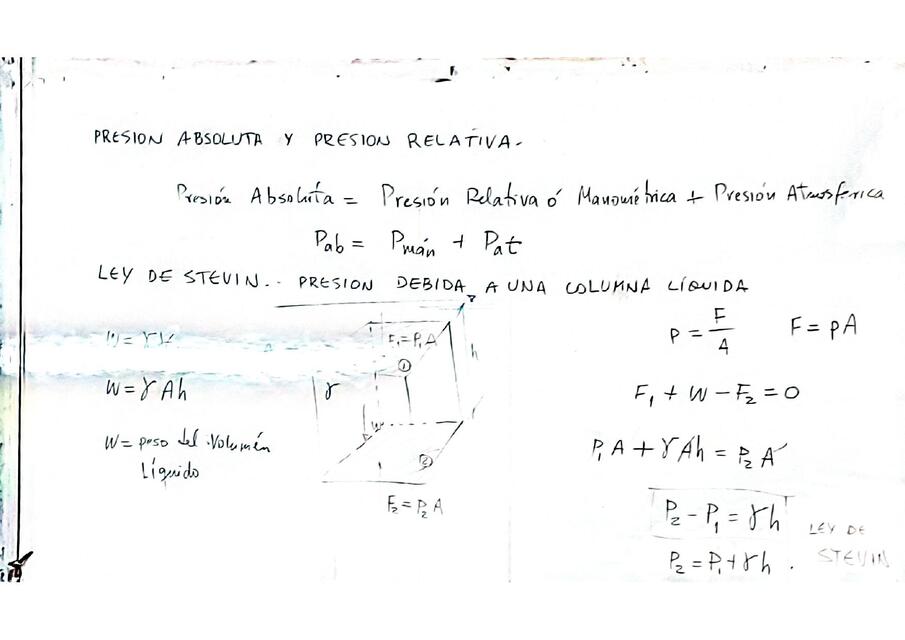 PRESION ABSOLUTA Y PRESION RELATIVA.
Presión Absoluta = Presión Relativa ó Manométrica + Presión Atmosferica
Pab = Pmán + Pat
LEY DE STEVIN.- PRESION DEBIDA A UNA COLUMNA LÍQUIDA
F₁ = P₁A
①
h
γ
W
②
F₂ = P₂A
W = γAh
W = peso del Volumén
Líquido
P = F/A F = pA
F₁ + W - F₂ = 0
P₁A + γAh = P₂A
P₂ - P₁ = γh
P₂ = P₁ + γh.
LEY DE
STEVIN